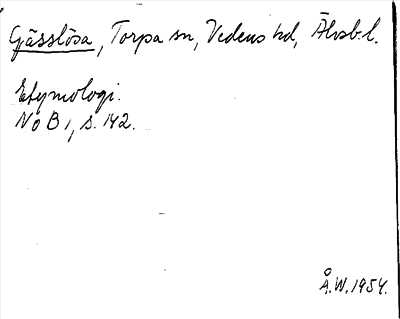 Gässlösa, Torpa sn, Vedens hd, Älvsb. l.
Etymologi.
NoB 1, s. 142.
Å.W. 1954.